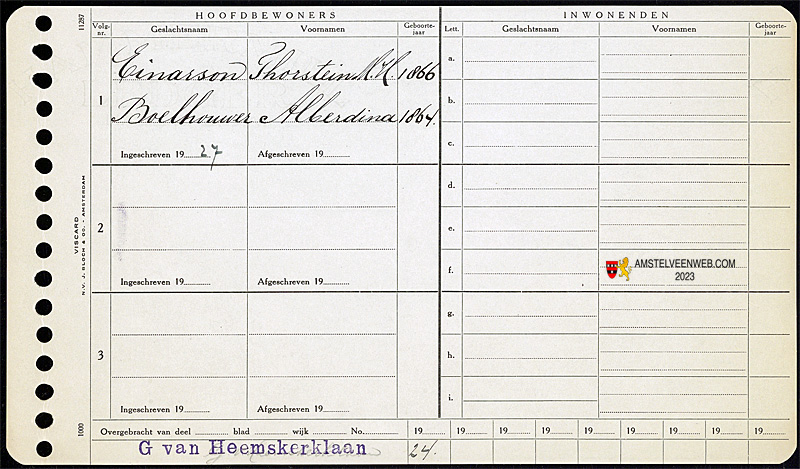 11287
HOOFDBEWONERS
INWONENDEN
Volg-nr. Geslachtsnaam Voornamen Geboorte-jaar Lett. Geslachtsnaam Voornamen Geboorte-jaar
1
Einarson Thorstein M.H. 1866
Boelhouwer Alberdina 1864.
Ingeschreven 19 27 Afgeschreven 19
2
Ingeschreven 19 Afgeschreven 19
3
Ingeschreven 19 Afgeschreven 19
a.
b.
c.
d.
e.
f.
g.
h.
i.
AMSTELVEENWEB.COM
2023
VISCARD
N.V. J. BLOCH & CO. - AMSTERDAM
1000
Overgebracht van deel blad wijk No. 19 19 19 19 19 19 19 19 19
G van Heemskerklaan 24.